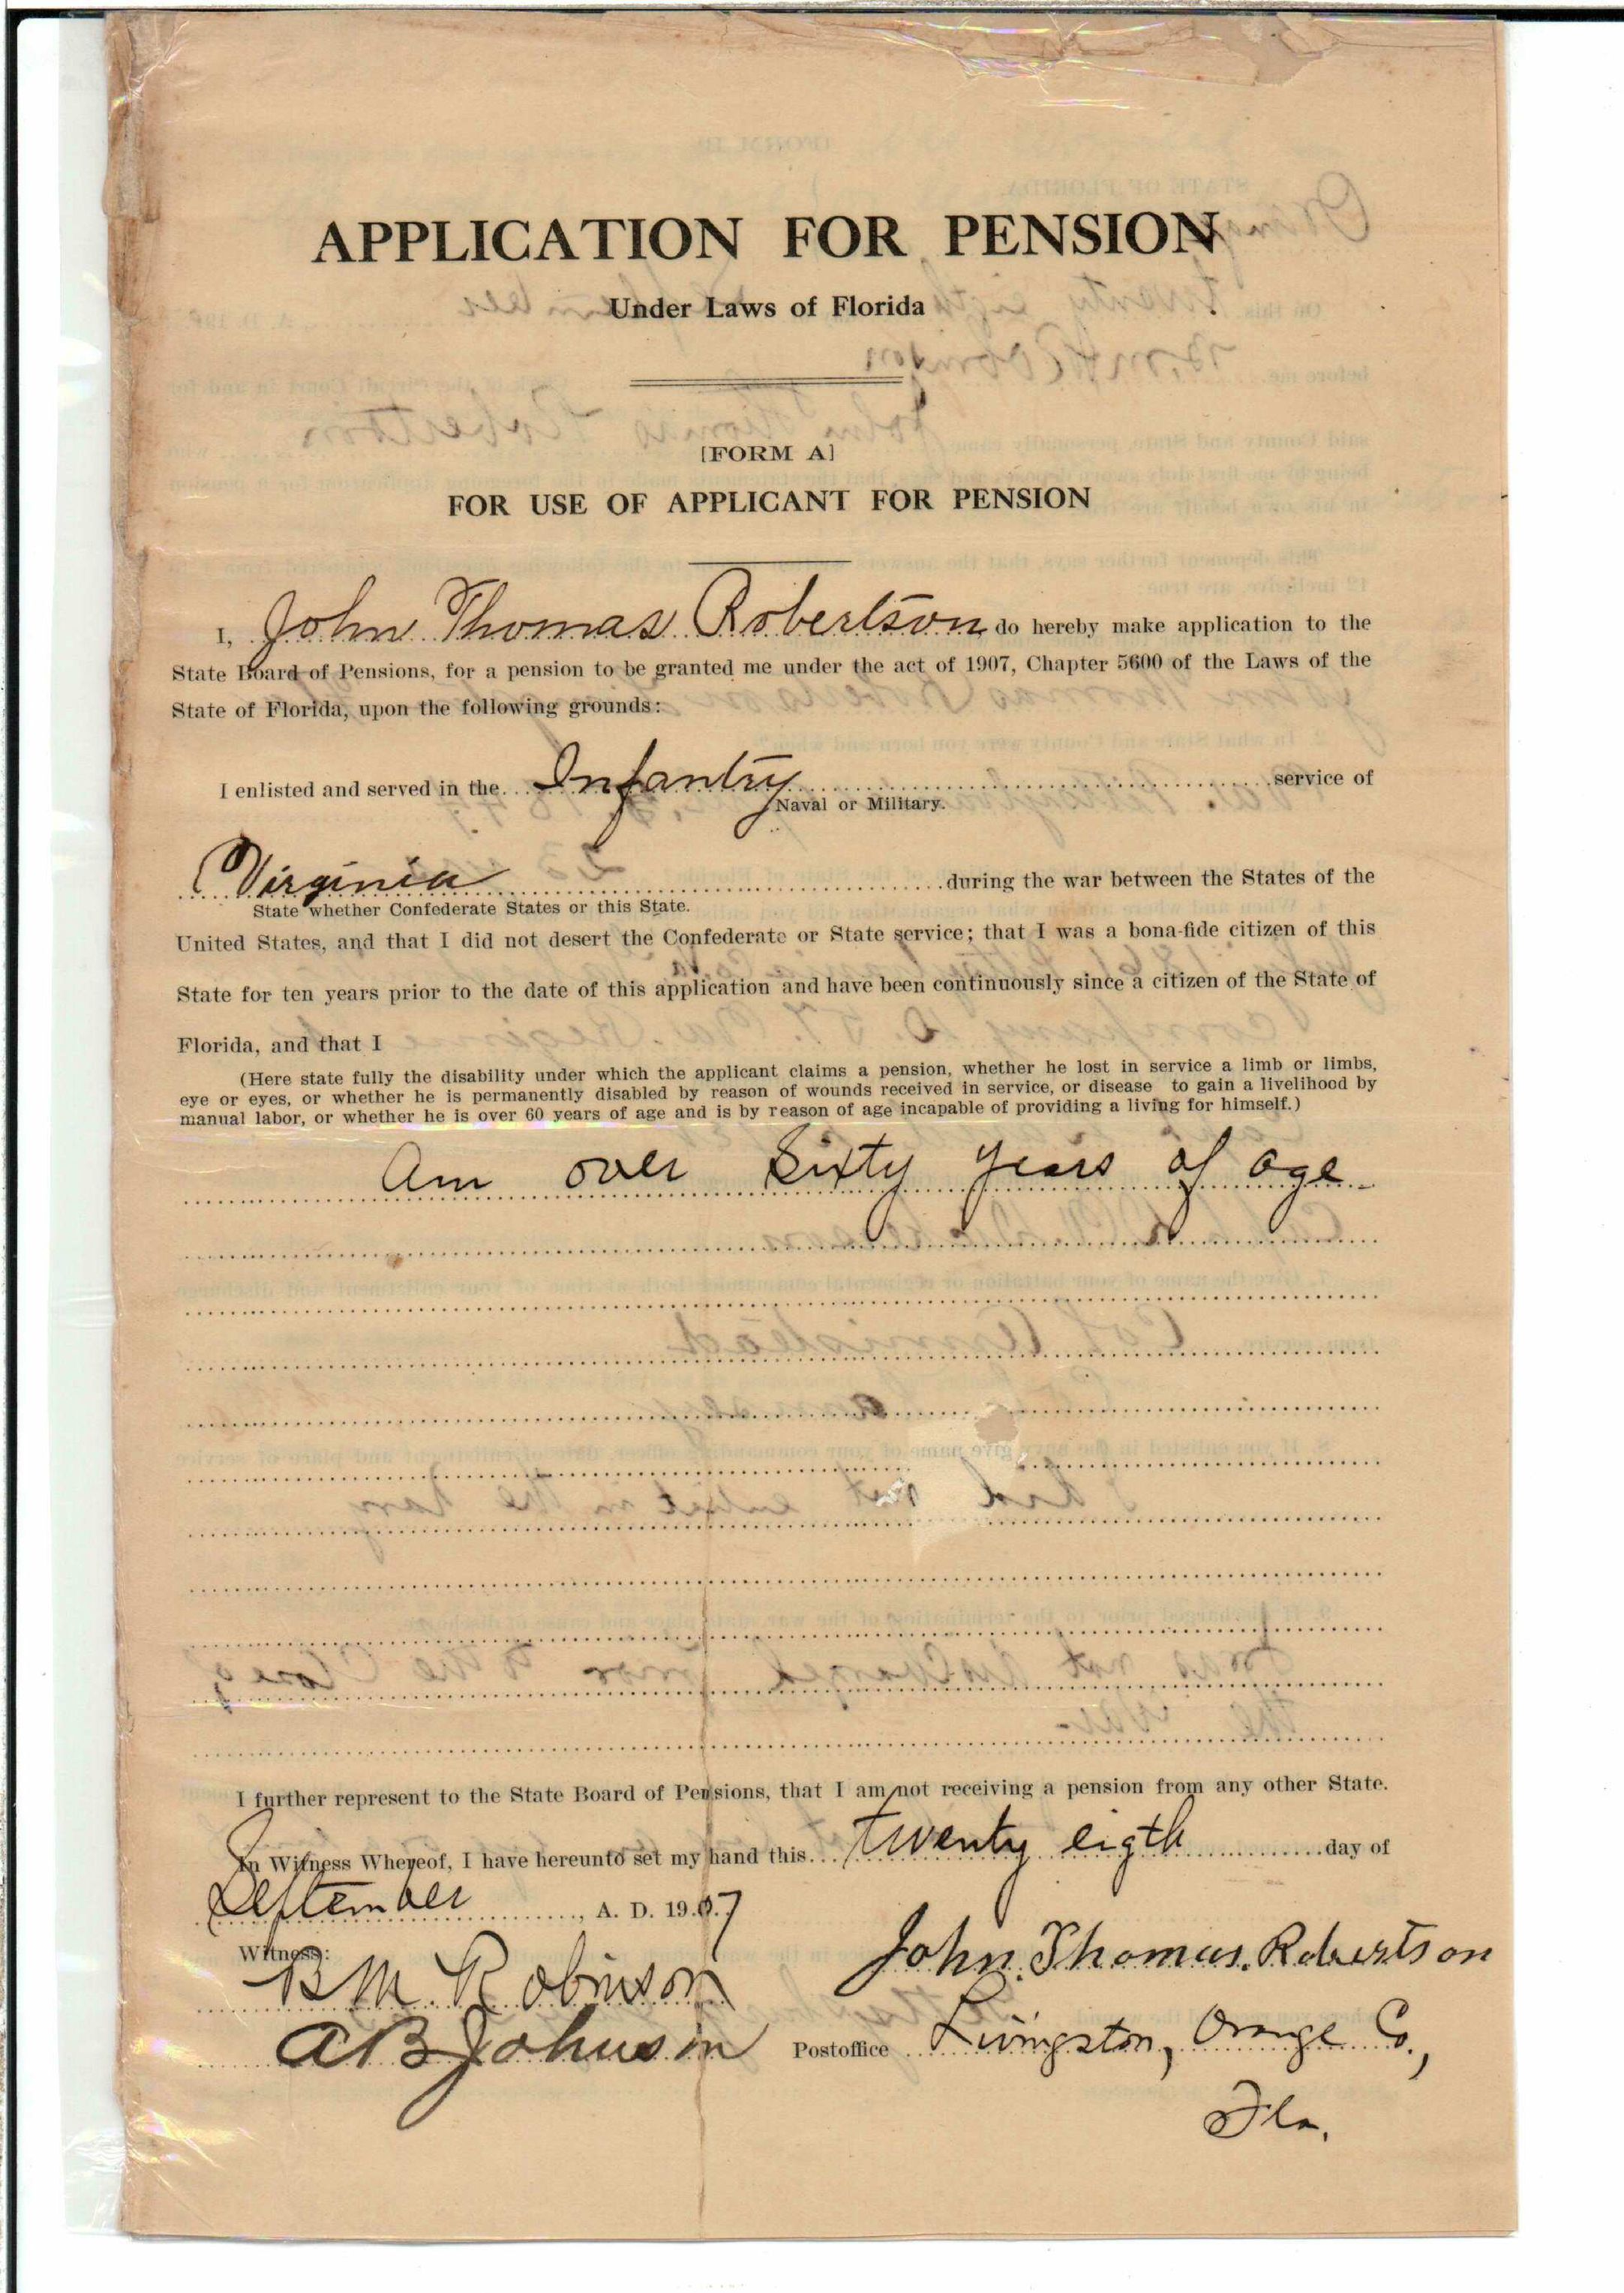 APPLICATION FOR PENSION
Under Laws of Florida
[FORM A]
FOR USE OF APPLICANT FOR PENSION
I, John Thomas Robertson do hereby make application to the
State Board of Pensions, for a pension to be granted me under the act of 1907, Chapter 5600 of the Laws of the
State of Florida, upon the following grounds:
I enlisted and served in the Infantry service of
Naval or Military.
Virginia during the war between the States of the
State whether Confederate States or this State.
United States, and that I did not desert the Confederate or State service; that I was a bona-fide citizen of this
State for ten years prior to the date of this application and have been continuously since a citizen of the State of
Florida, and that I
(Here state fully the disability under which the applicant claims a pension, whether he lost in service a limb or limbs,
eye or eyes, or whether he is permanently disabled by reason of wounds received in service, or disease to gain a livelihood by
manual labor, or whether he is over 60 years of age and is by reason of age incapable of providing a living for himself.)
Am over Sixty years of age
I further represent to the State Board of Pensions, that I am not receiving a pension from any other State.
In Witness Whereof, I have hereunto set my hand this twenty eigth day of
September, A. D. 1907
Witness:
B M Robinson
John Thomas Robertson
A B Johnson
Postoffice Livingston, Orange Co.,
Fla.